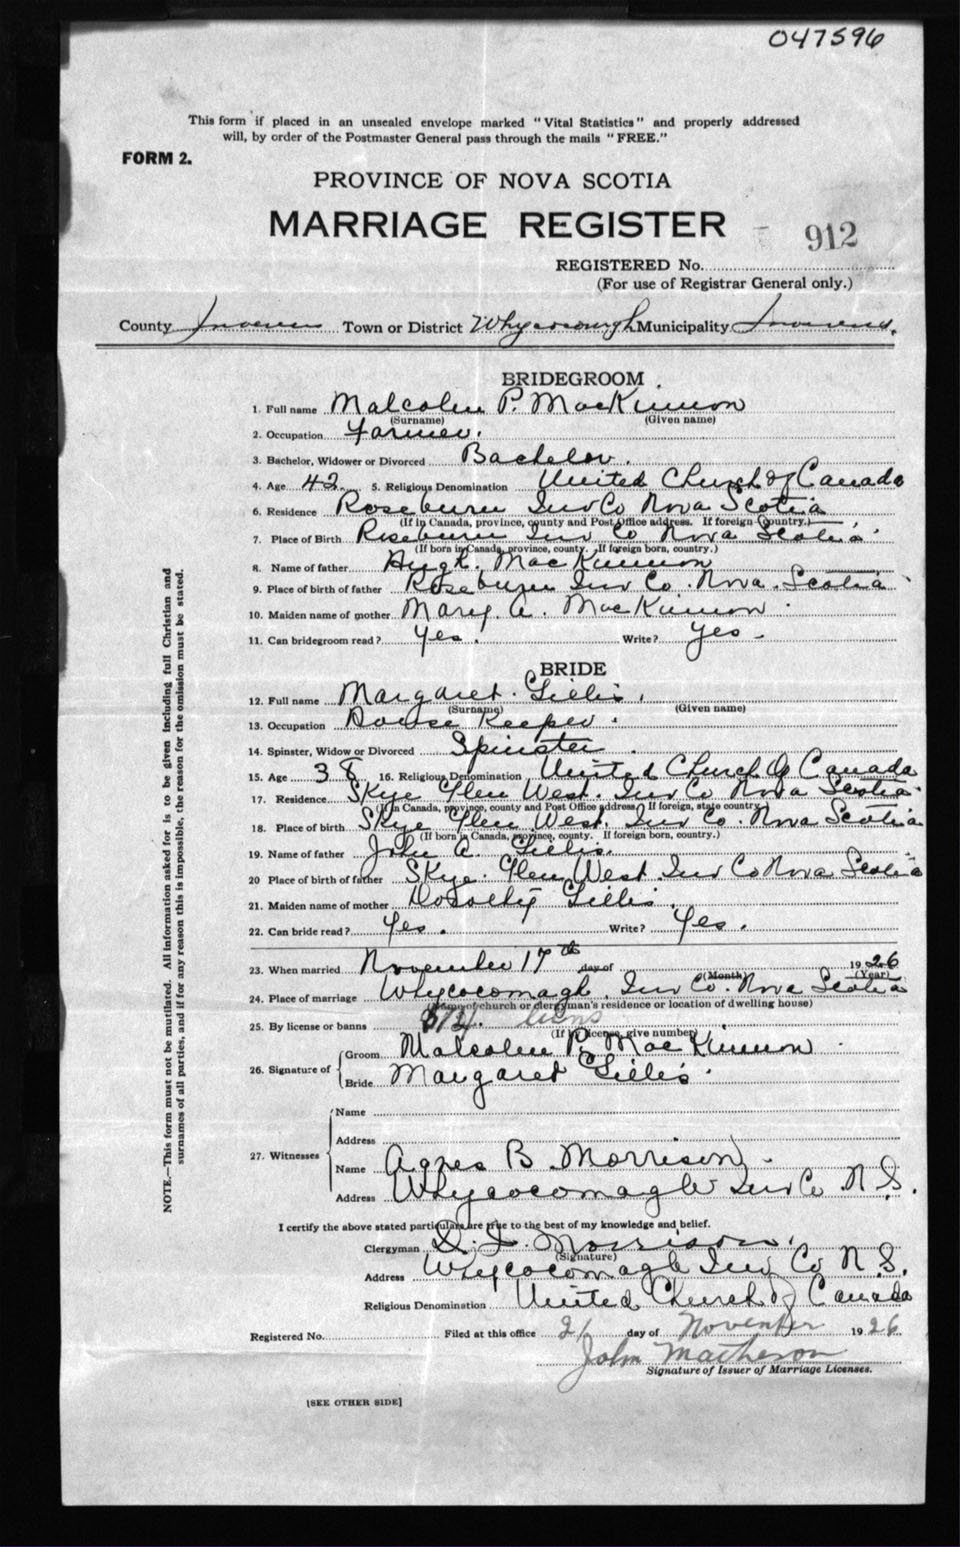 047596
This form if placed in an unsealed envelope marked "Vital Statistics" and properly addressed
will, by order of the Postmaster General pass through the mails "FREE."
FORM 2.
PROVINCE OF NOVA SCOTIA
MARRIAGE REGISTER
912
REGISTERED No.
(For use of Registrar General only.)
County Inverness Town or District Whycocomagh Municipality Inverness.
BRIDEGROOM
1. Full name Malcolm P. MacKinnon
(Surname) (Given name)
2. Occupation Farmer.
3. Bachelor, Widower or Divorced Bachelor.
4. Age 42. 5. Religious Denomination United Church of Canada
6. Residence Roseburn Inv Co Nova Scotia
(If in Canada, province, county and Post Office address. If foreign country.)
7. Place of Birth Roseburn Inv Co Nova Scotia
(If born in Canada, province, county. If foreign born, country.)
8. Name of father Hugh. MacKinnon
9. Place of birth of father Roseburn Inv Co. Nova. Scotia
10. Maiden name of mother Mary. A. MacKinnon.
11. Can bridegroom read? Yes. Write? Yes.
BRIDE
12. Full name Margaret. Gillis.
(Surname) (Given name)
13. Occupation House Keeper.
14. Spinster, Widow or Divorced Spinster.
15. Age 38 16. Religious Denomination United Church Of Canada
17. Residence Skye Glen West. Inv Co Nova Scotia
(If in Canada, province, county and Post Office address. If foreign, state country.)
18. Place of birth Skye Glen West. Inv Co. Nova Scotia
(If born in Canada, province, county. If foreign born, country.)
19. Name of father John A. Gillis.
20 Place of birth of father Skye. Glen West Inv Co Nova Scotia
21. Maiden name of mother Dorothy Gillis.
22. Can bride read? Yes. Write? Yes.
23. When married November 17th day of 1926
(Month) (Year)
24. Place of marriage Whycocomagh. Inv Co. Nova Scotia
(Name of church or clergyman's residence or location of dwelling house)
25. By license or banns
(If by license, give number)
26. Signature of Groom Malcolm P. MacKinnon.
Bride Margaret Gillis.
27. Witnesses
Name
Address
Name Agnes B Morrison.
Address Whycocomagh Inv Co N S.
I certify the above stated particulars are true to the best of my knowledge and belief.
Clergyman Morrison.
(Signature)
Address Whycocomagh Inv Co N S.
Religious Denomination United Church of Canada
Registered No. Filed at this office 21 day of November 1926
John Matheson
Signature of Issuer of Marriage Licenses.
[SEE OTHER SIDE]
NOTE.—This form must not be mutilated. All information asked for is to be given including full Christian and
surnames of all parties, and if for any reason this is impossible, the reason for the omission must be stated.